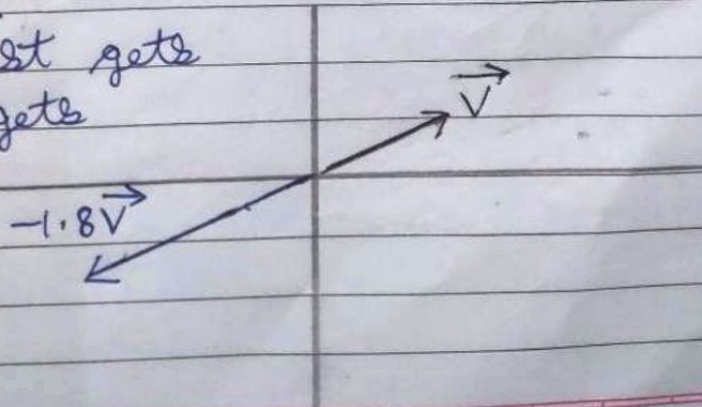 gets
gets
V
-1.8V